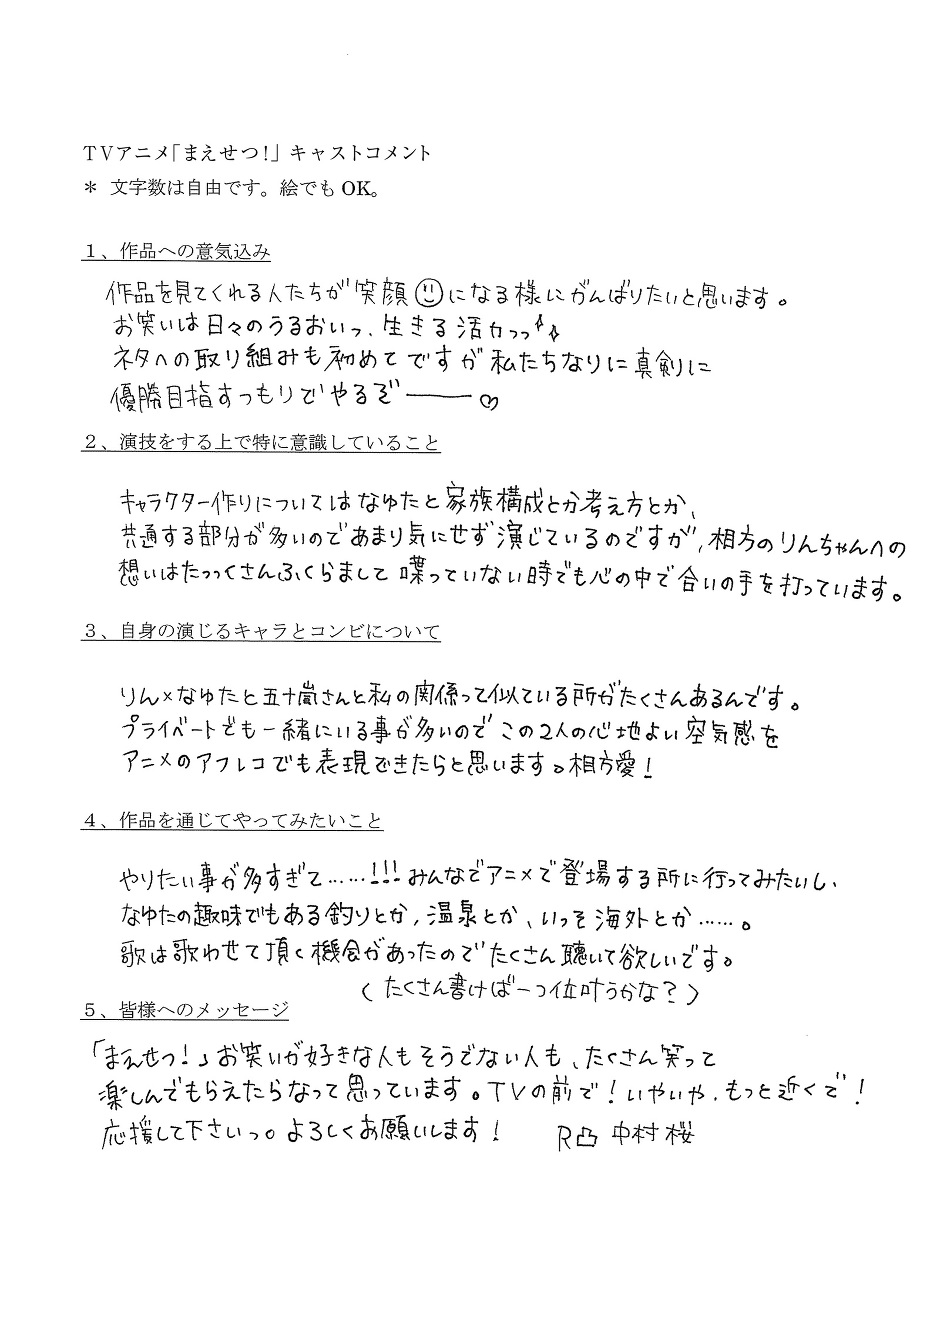 TVアニメ「まえせつ！」キャストコメント
＊ 文字数は自由です。絵でもOK。
１、作品への意気込み
作品を見てくれる人たちが笑顔☺になる様にがんばりたいと思います。
お笑いは日々のうるおいっ、生きる活力っっ
ネタへの取り組みも初めてですが私たちなりに真剣に
優勝目指すつもりでやるぞ――♡
２、演技をする上で特に意識していること
キャラクター作りについてはなゆたと家族構成とか考え方とか、
共通する部分が多いのであまり気にせず演じているのですが、相方のりんちゃんへの
想いはたっっくさんふくらまして喋っていない時でも心の中で合いの手を打っています。
３、自身の演じるキャラとコンビについて
りん×なゆたと五十嵐さんと私の関係って似ている所がたくさんあるんです。
プライベートでも一緒にいる事が多いのでこの2人の心地よい空気感を
アニメのアフレコでも表現できたらと思います。相方愛！
４、作品を通じてやってみたいこと
やりたい事が多すぎて……!!!みんなでアニメで登場する所に行ってみたいし、
なゆたの趣味でもある釣りとか、温泉とか、いっそ海外とか……。
歌は歌わせて頂く機会があったのでたくさん聴いて欲しいです。
（たくさん書けば一つ位叶うかな？）
５、皆様へのメッセージ
「まえせつ！」お笑いが好きな人もそうでない人も、たくさん笑って
楽しんでもらえたらなって思っています。TVの前で！いやいや、もっと近くで！
応援して下さいっ。よろしくお願いします！ R凸 中村 桜